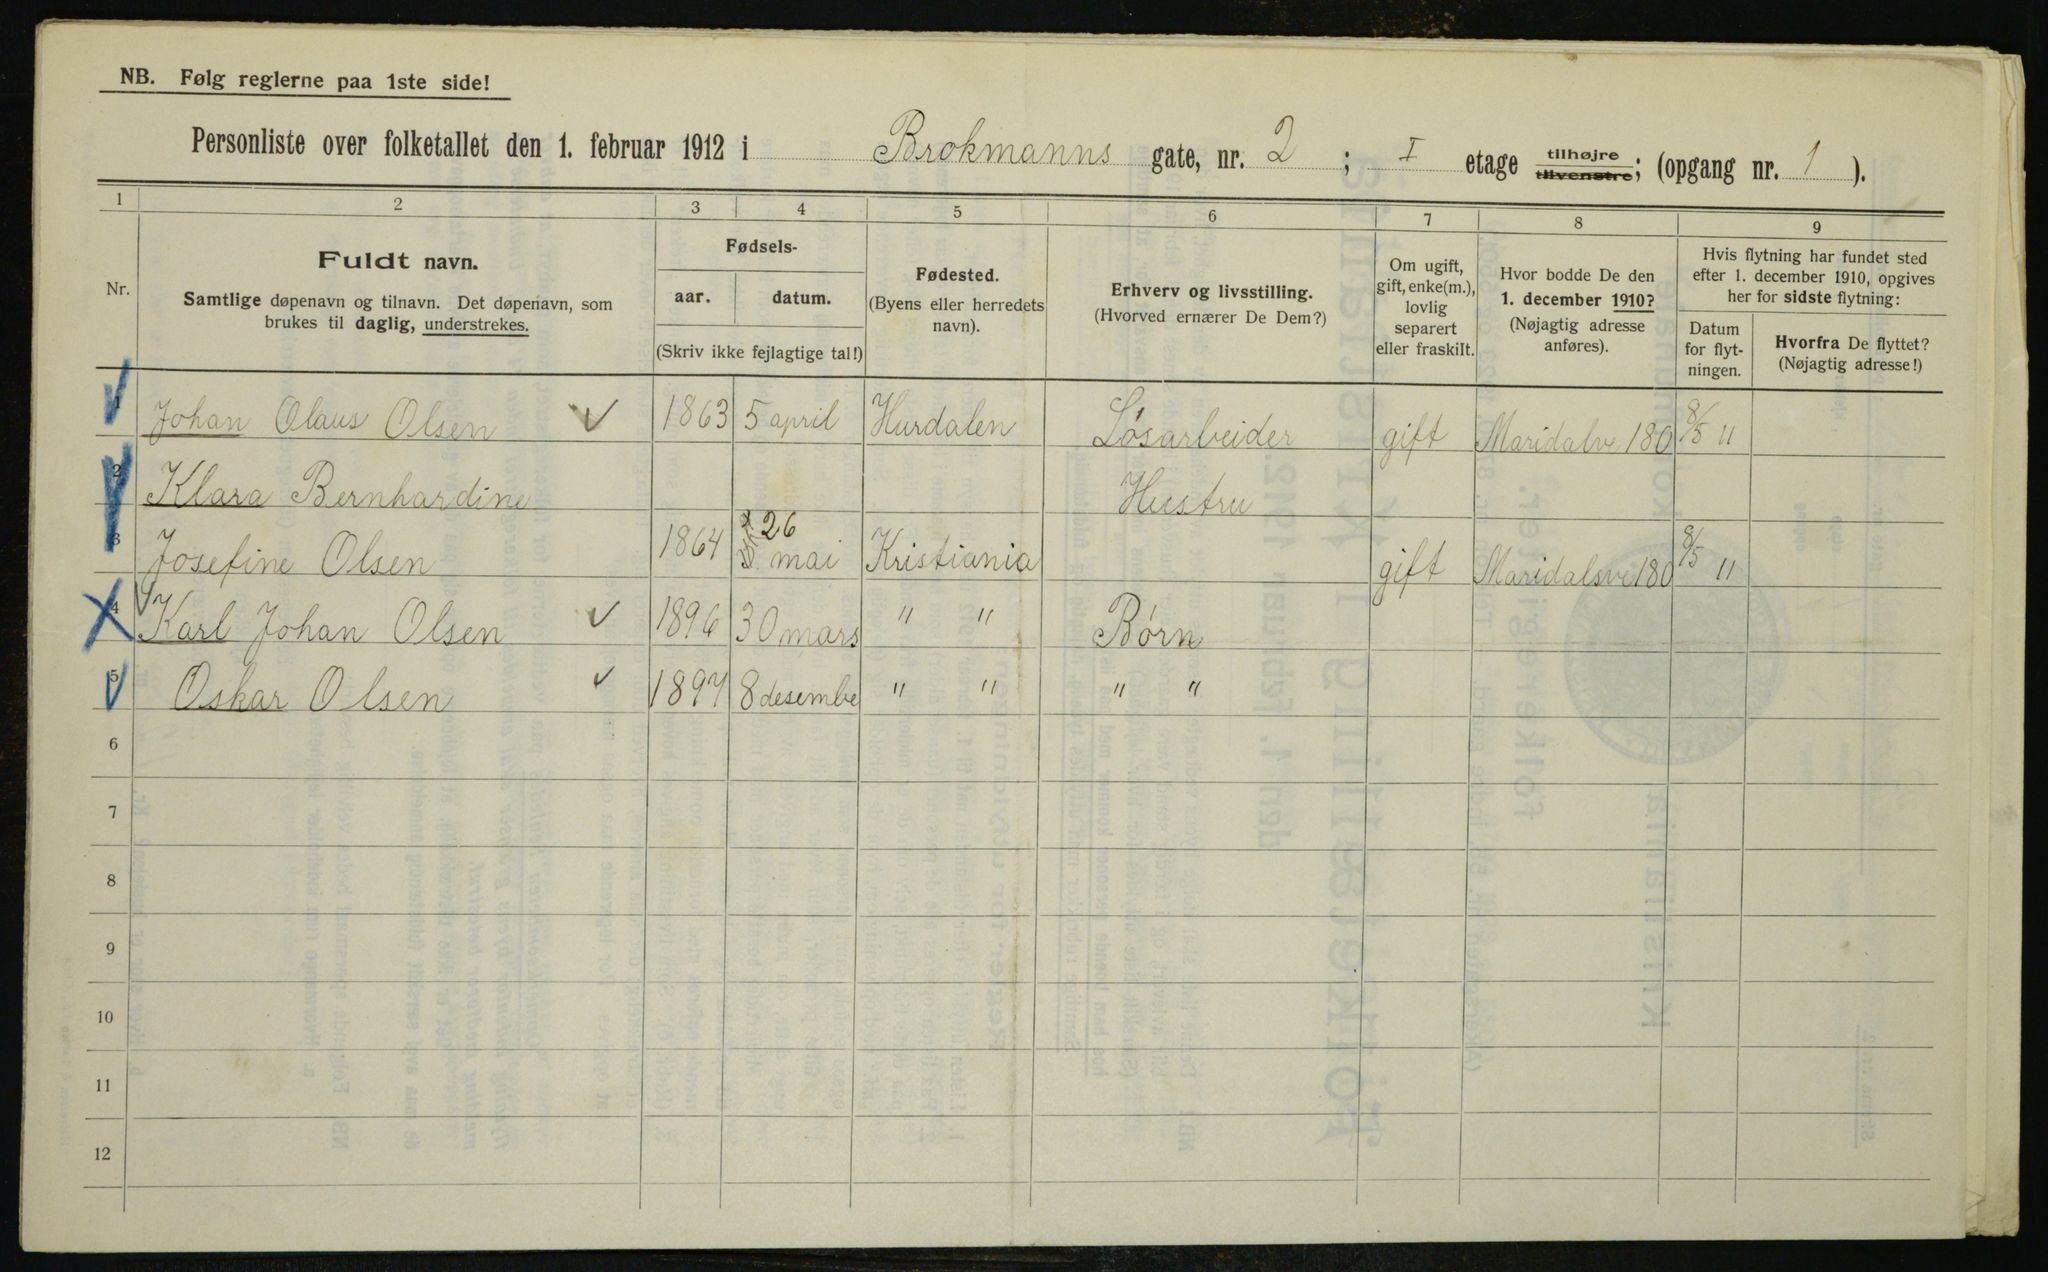 NB. Følg reglerne paa 1ste side!
Personliste over folketallet den 1. februar 1912 i Brokmanns gate, nr. 2 ; I etage tilhøjre tilvenstre; (opgang nr. 1 ).
1 2 3 4 5 6 7 8 9
Nr.
Fuldt navn.
Samtlige døpenavn og tilnavn. Det døpenavn, som
brukes til daglig, understrekes.
Fødsels-
aar. datum.
(Skriv ikke fejlagtige tal!)
Fødested.
(Byens eller herredets
navn).
Erhverv og livsstilling.
(Hvorved ernærer De Dem?)
Om ugift,
gift, enke(m.),
lovlig
separert
eller fraskilt.
Hvor bodde De den
1. december 1910?
(Nøjagtig adresse
anføres).
Hvis flytning har fundet sted
efter 1. december 1910, opgives
her for sidste flytning:
Datum
for flyt-
ningen.
Hvorfra De flyttet?
(Nøjagtig adresse!)
1 Johan Olaus Olsen 1863 5 april Hurdalen Løsarbeider gift Maridalve 180 8/5 11
2 Klara Bernhardine Hustru
3 Josefine Olsen 1864 26 mai Kristiania gift Maridalsve 180 8/5 11
4 Karl Johan Olsen 1896 30 mars " " Børn
5 Oskar Olsen 1897 8 desembe " " " "
6
7
8
9
10
11
12